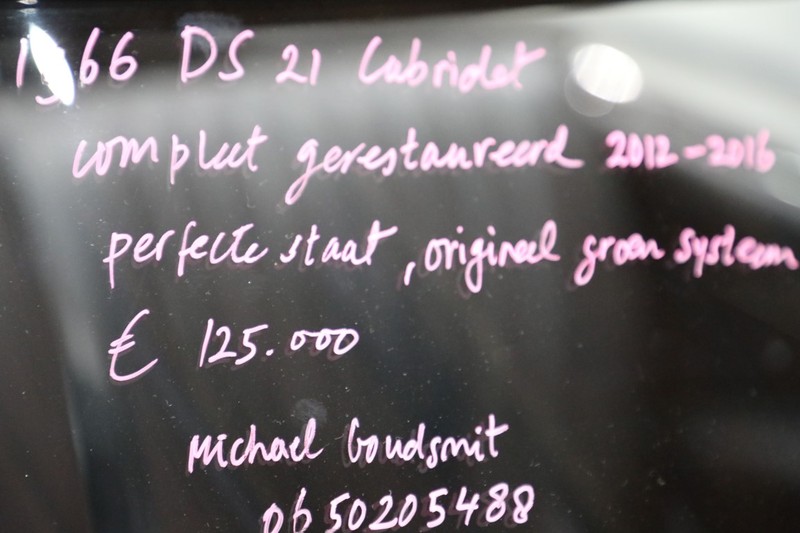 1966 DS 21 Cabriolet
compleet gerestaureerd 2012-2016
perfecte staat, origineel groen systeem
€ 125.000
Michael Goudsmit
06 50205488